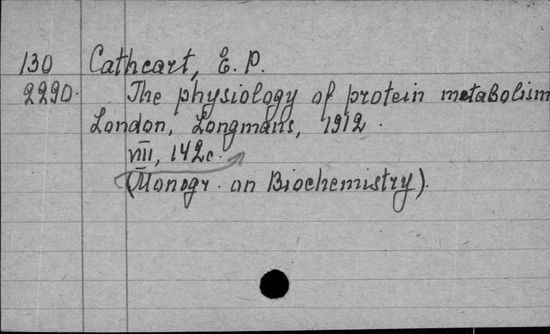 130 Cathcart, E. P.
2290. The physiology of protein metabolism
London, Longmans, 1912.
VIII, 142c.
(Monogr. on Biochemistry).